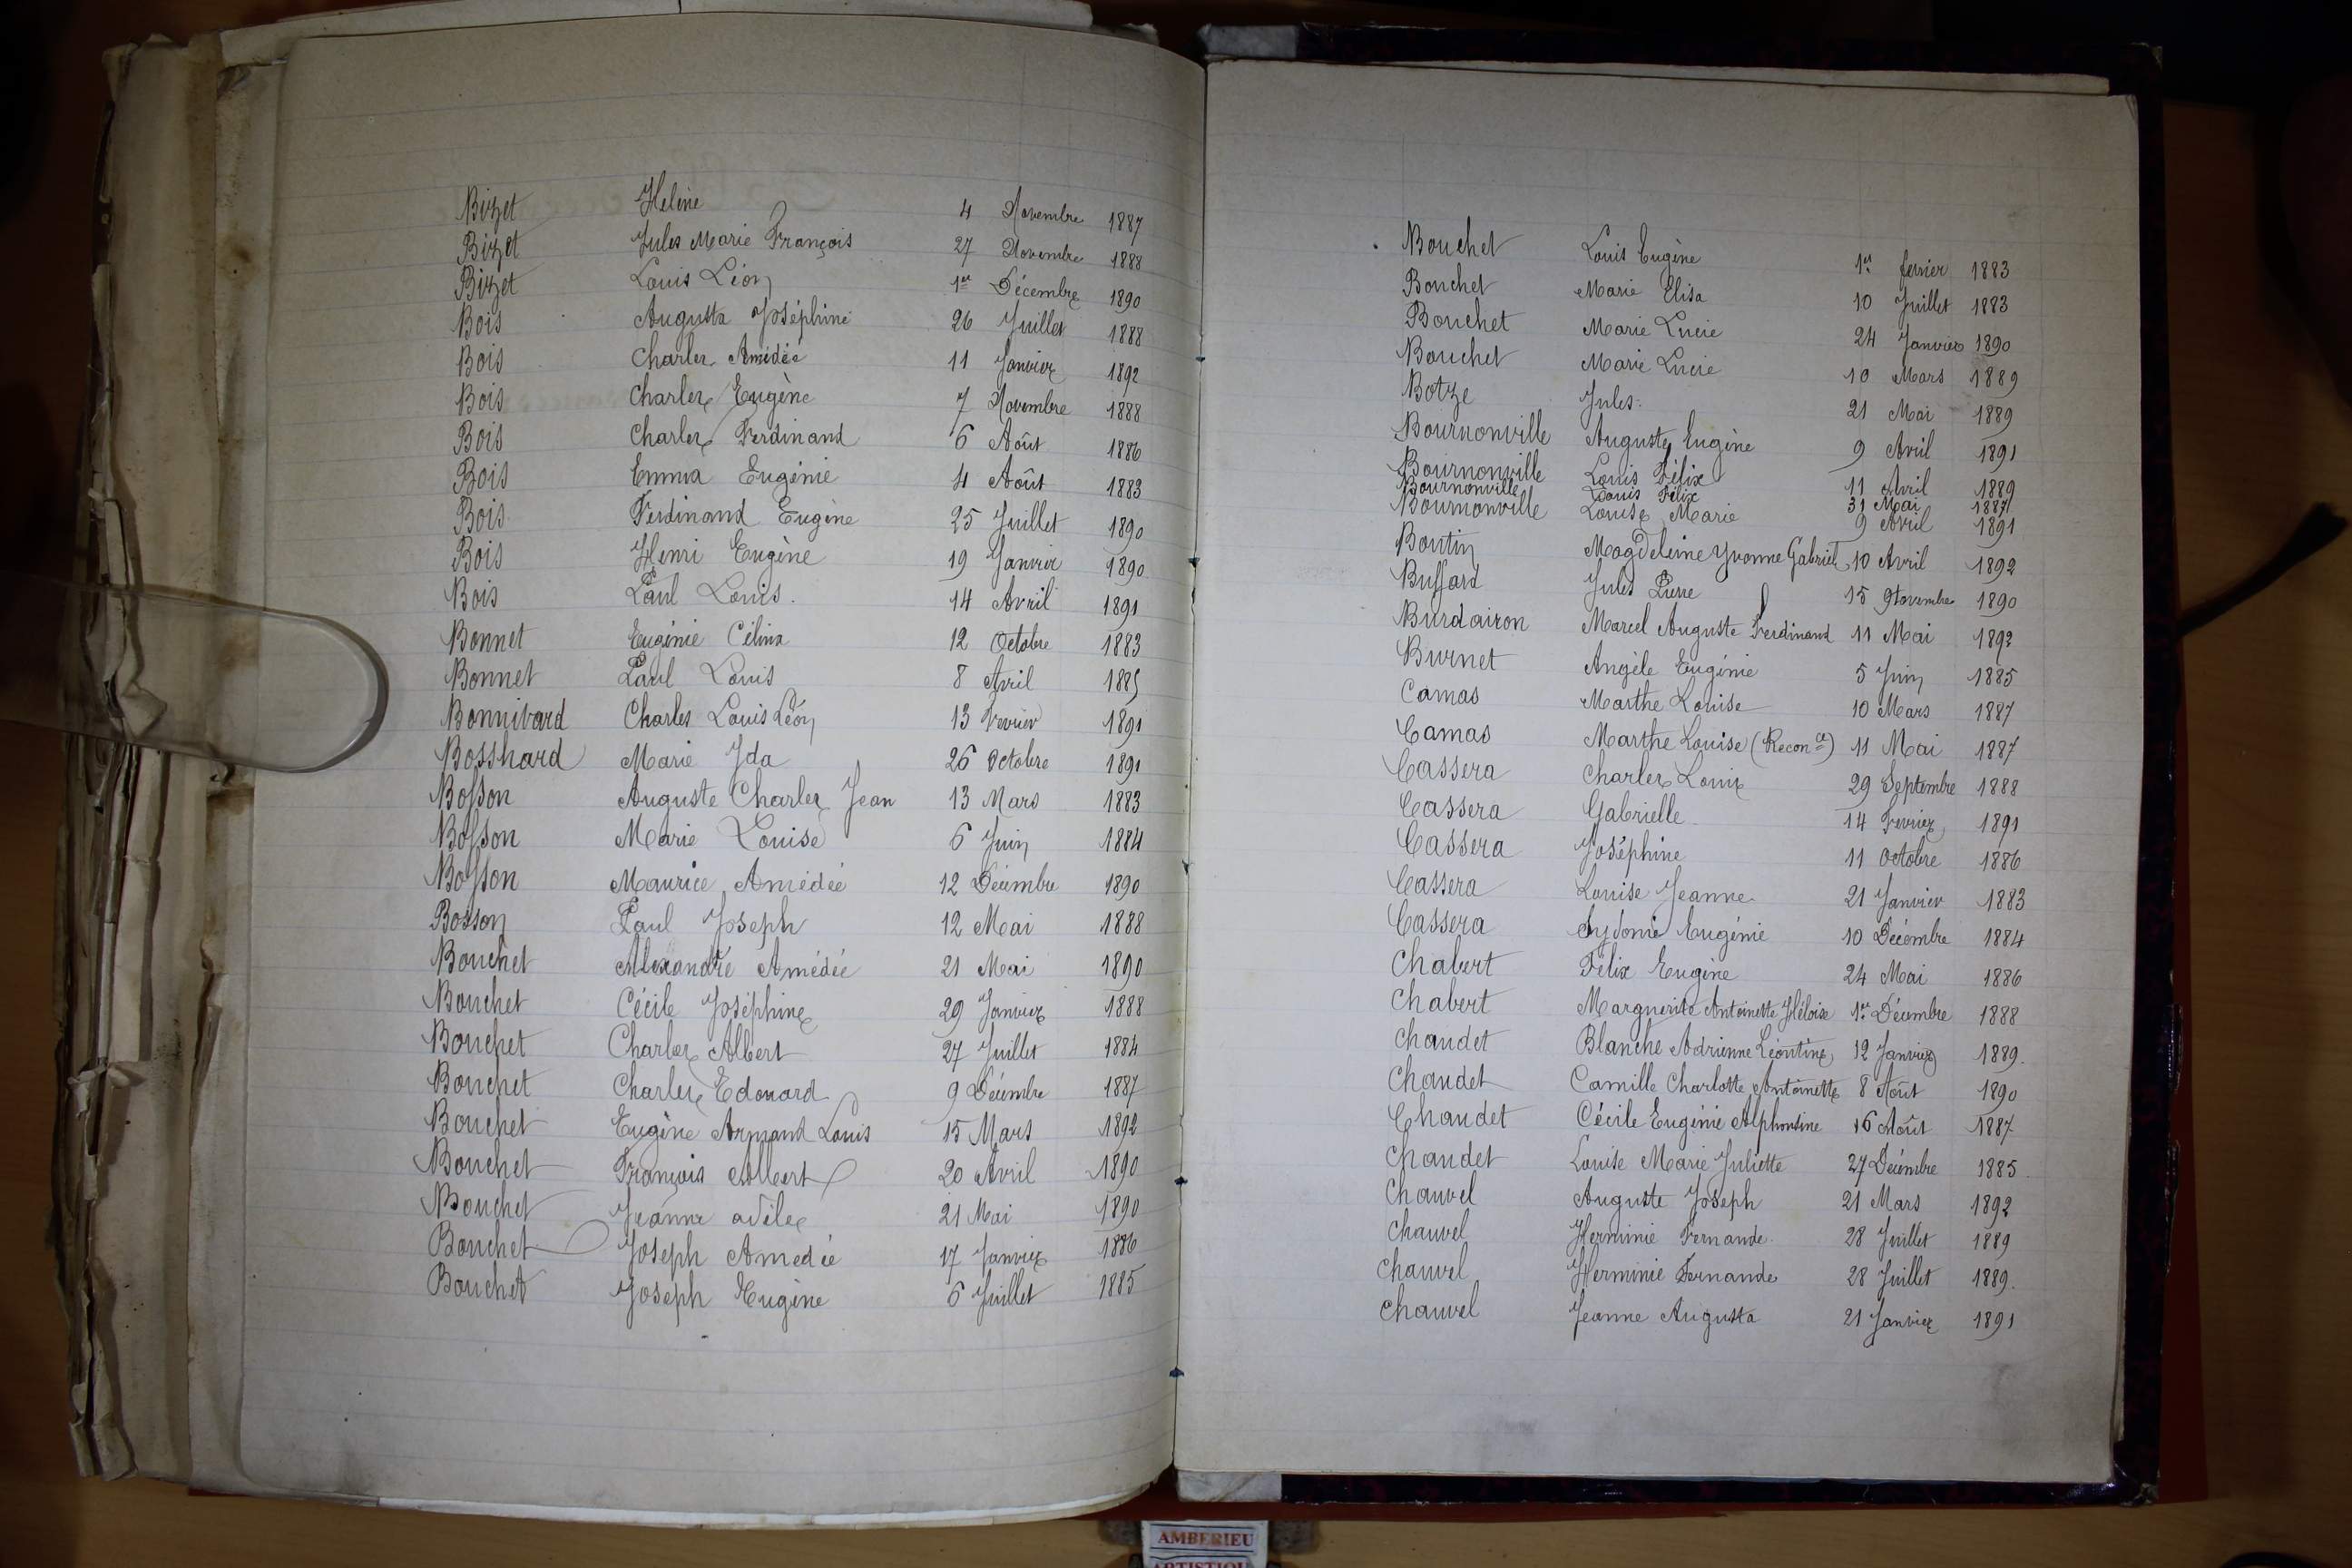 Bizet Heline 4 Novembre 1887
Bizet Jules Marie François 27 Novembre 1888
Bizet Louis Léon 1er Décembre 1890
Bois Augusta Joséphine 26 Juillet 1888
Bois Charles Amédée 11 Janvier 1892
Bois Charles Eugène 7 Novembre 1888
Bois Charles Ferdinand 6 Août 1886
Bois Emma Eugénie 4 Août 1883
Bois Ferdinand Eugène 25 Juillet 1890
Bois Henri Eugène 19 Janvier 1890
Bois Paul Louis. 14 Avril 1891
Bonnet Eugénie Célina 12 Octobre 1883
Bonnet Paul Louis 8 Avril 1885
Bonnivard Charles Louis Léon 13 Fevrier 1891
Bosshard Marie Ida 26 Octobre 1891
Bosson Auguste Charles Jean 13 Mars 1883
Bosson Marie Louise 6 Juin 1884
Bosson Maurice Amédée 12 Décembre 1890
Bosson Paul Joseph 12 Mai 1888
Bouchet Alexandre Amédée 21 Mai 1890
Bouchet Cécile Joséphine 29 Janvier 1888
Bouchet Charles Albert 27 Juillet 1884
Bouchet Charles Edouard 9 Décembre 1887
Bouchet Eugène Armand Louis 15 Mars 1892
Bouchet François Albert 20 Avril 1890
Bouchet Jeanne adèle 21 Mai 1890
Bouchet Joseph Amedée 17 Janvier 1886
Bouchet Joseph Eugène 6 Juillet 1885
Bouchet Louis Eugène 1er fevrier 1883
Bouchet Marie Elisa 10 Juillet 1883
Bouchet Marie Lucie 24 Janvier 1890
Bouchet Marie Lucie 10 Mars 1889
Botze Jules. 21 Mai 1889
Bournonville Auguste Eugène 9 Avril 1891
Bournonville Louis Félix 11 Avril 1889
Bournonville Louis Félix 31 Mai 1887
Bournonville Louise Marie 9 Avril 1891
Boutin Magdeleine Yvonne Gabriel 10 Avril 1892
Buffard Jules Pierre 15 Novembre 1890
Burdairon Marcel Auguste Ferdinand 11 Mai 1892
Burnet Angèle Eugénie 5 Juin 1885
Camas Marthe Louise 10 Mars 1887
Camas Marthe Louise (Recon ce) 11 Mai 1887
Cassera Charles Louis 29 Septembre 1888
Cassera Gabrielle 14 Fevrier 1891
Cassera Joséphine 11 Octobre 1886
Cassera Louise Jeanne 21 Janvier 1883
Cassera Sydonie Eugénie 10 Décembre 1884
Chabert Félix Eugène 24 Mai 1886
Chabert Marguerite Antoinette Héloise 1er Décembre 1888
Chaudet Blanche Adrienne Léontine 12 Janvier 1889.
Chaudet Camille Charlotte Antoinette 8 Août 1890
Chaudet Cécile Eugénie Alphonsine 16 Août 1887
Chaudet Louise Marie Juliette 27 Décembre 1885
Chauvel Auguste Joseph 21 Mars 1892
Chauvel Herminie Fernande. 28 Juillet 1889
Chauvel Herminie Fernande 28 Juillet 1889.
Chauvel Jeanne Augusta 21 Janvier 1891
AMBERIEU